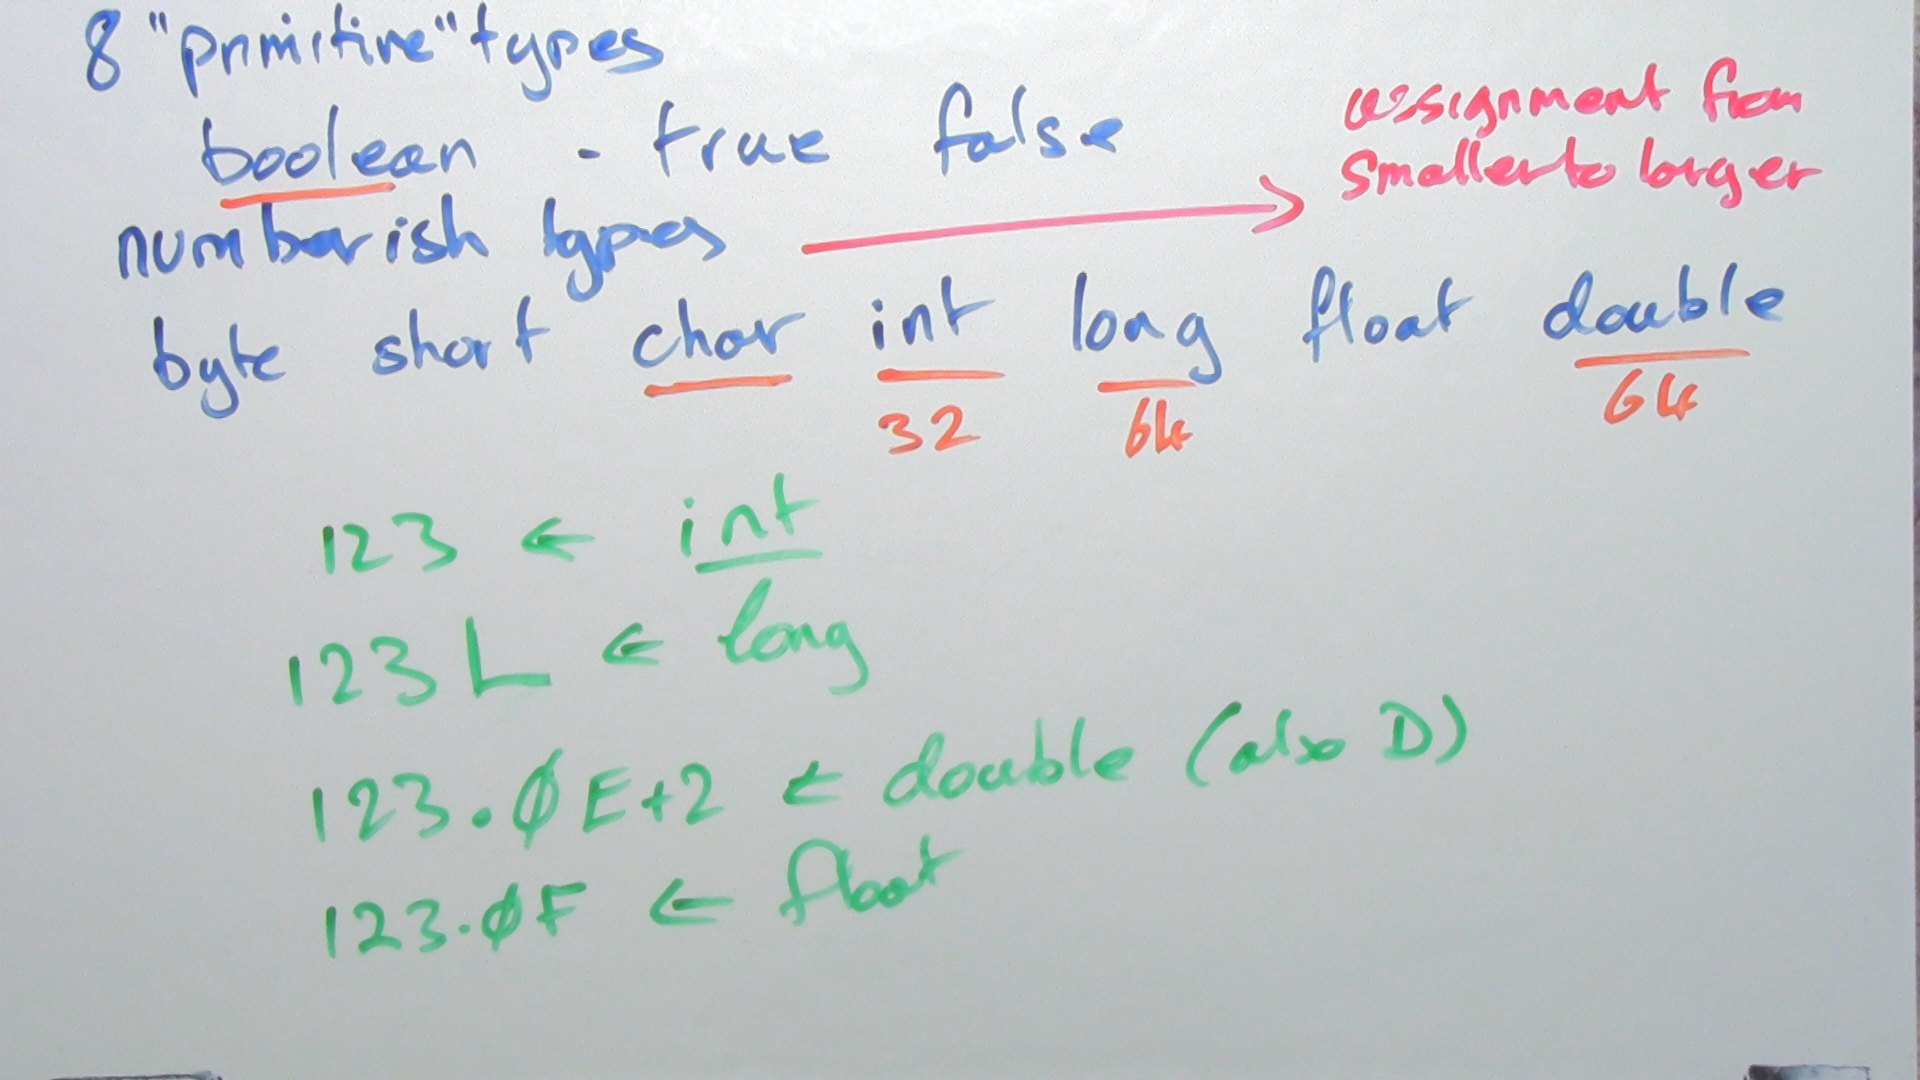 8 "primitive" types
boolean - true false
assignment from
smaller to larger
numberish types
byte short char int long float double
32 64 64
123 ← int
123L ← long
123.0E+2 ← double (also D)
123.0F ← float